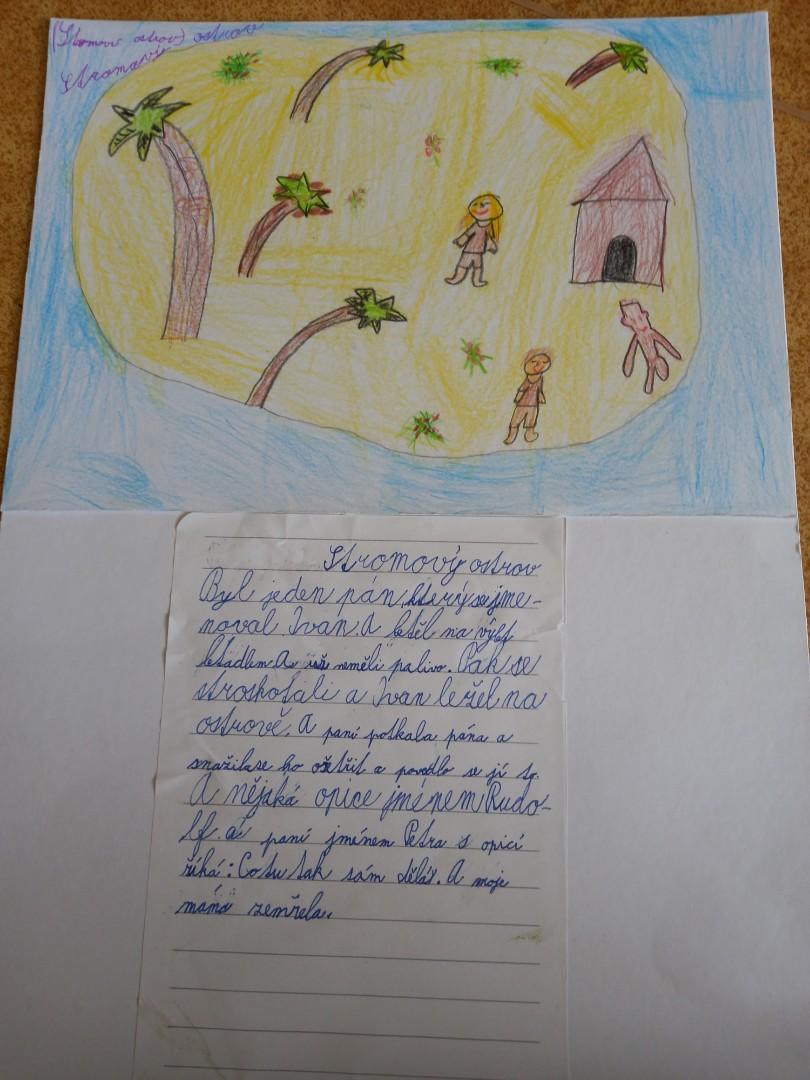 (Stomoví ostrov) ostrov
Stromoví
Stromový ostrov
Byl jeden pán, který se jme-
noval Ivan. A letěl na výlet
letadlem. A už neměli palivo. Pak se
stroskotali a Ivan ležel na
ostrově. A paní potkala pána a
snažila se ho ošetřit a povedlo se jí to.
A nějaká opice jménem Rudo-
lf. a paní jménem Petra s opicí
říká: Co tu tak sám děláš. A moje
máma zemřela.